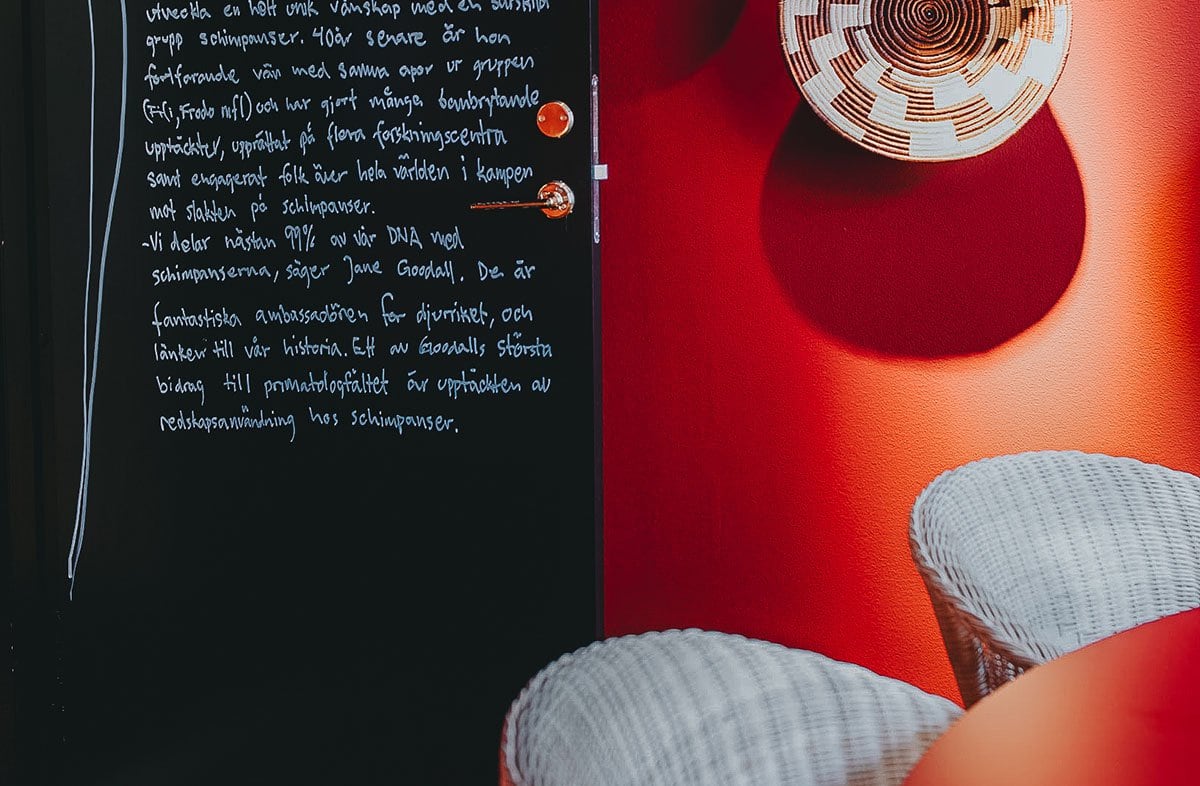 utveckla en helt unik vänskap med en särskild
grupp schimpanser. 40 år senare är hon
fortfarande vän med samma apor ur gruppen
(Fifi, Frodo mfl) och har gjort många banbrytande
upptäckter, upprättat på flera forskningscentra
samt engagerat folk över hela världen i kampen
mot slakten på schimpanser.
-Vi delar nästan 99% av vår DNA med
schimpanserna, säger Jane Goodall. De är
fantastiska ambassadören för djurriket, och
länken till vår historia. Ett av Goodalls största
bidrag till primatologfältet är upptäckten av
redskapsanvändning hos schimpanser.